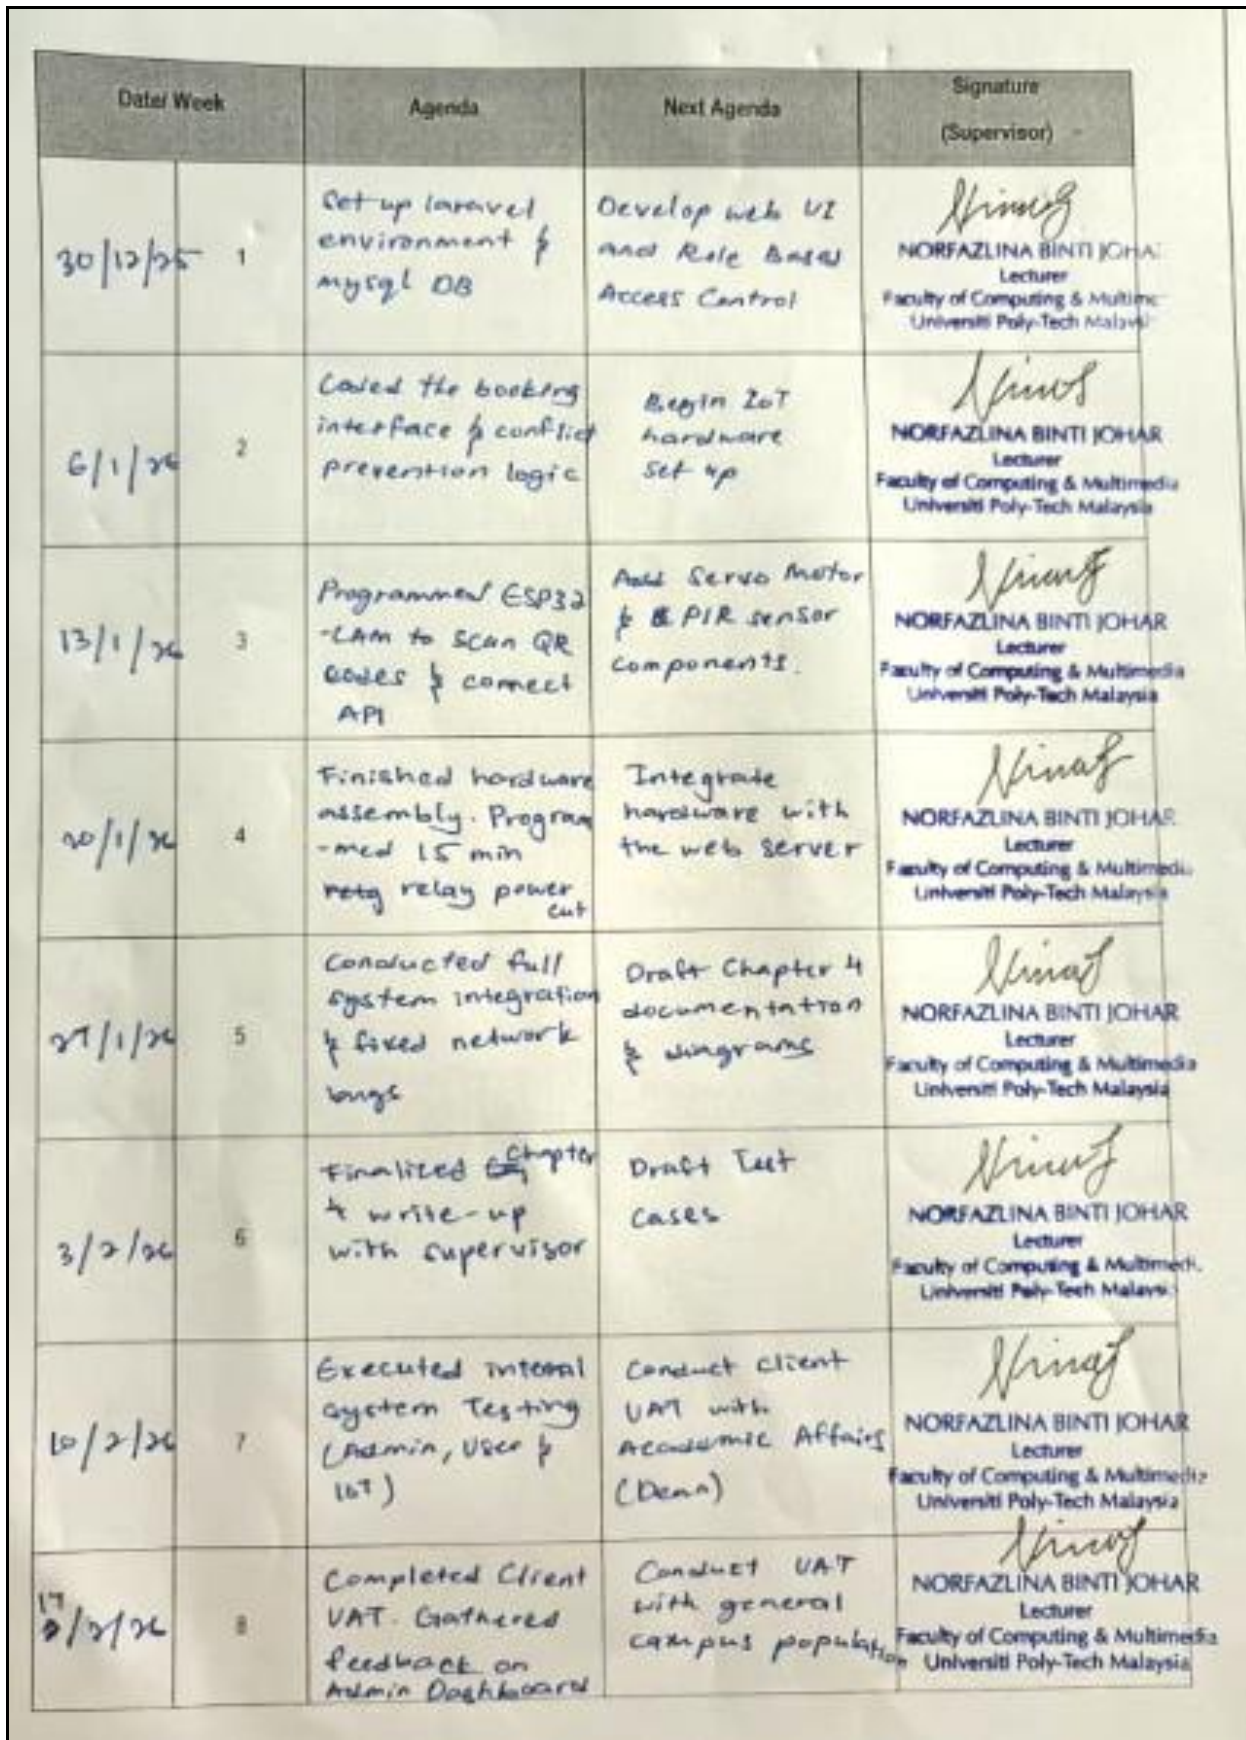 Date/ Week
Agenda
Next Agenda
Signature
(Supervisor)
30/12/25
1
Set up laravel
environment &
mysql DB
Develop web UI
and Role Based
Access Control
NORFAZLINA BINTI JOHA
Lecturer
Faculty of Computing & Multime
Universiti Poly-Tech Malays
6/1/26
2
Coded the booking
interface & conflict
prevention logic
Begin IoT
hardware
set up
NORFAZLINA BINTI JOHAR
Lecturer
Faculty of Computing & Multimedia
Universiti Poly-Tech Malaysia
13/1/26
3
Programmed ESP32
-CAM to scan QR
codes & connect
API
Add Servo Motor
& PIR sensor
components.
NORFAZLINA BINTI JOHAR
Lecturer
Faculty of Computing & Multimedia
Universiti Poly-Tech Malaysia
20/1/26
4
Finished hardware
assembly. Program
-med 15 min
relay power
cut
Integrate
hardware with
the web server
NORFAZLINA BINTI JOHAR
Lecturer
Faculty of Computing & Multimedi
Universiti Poly-Tech Malaysia
27/1/26
5
Conducted full
system integration
& fixed network
bugs
Draft Chapter 4
documentation
& diagrams
NORFAZLINA BINTI JOHAR
Lecturer
Faculty of Computing & Multimedia
Universiti Poly-Tech Malaysia
3/2/26
6
Finalized Chapter
4 write-up
with supervisor
Draft Test
Cases
NORFAZLINA BINTI JOHAR
Lecturer
Faculty of Computing & Multimedi
Universiti Poly-Tech Malaysi
10/2/26
7
Executed internal
system Testing
(Admin, User &
IoT)
Conduct client
UAT with
Academic Affairs
(Dean)
NORFAZLINA BINTI JOHAR
Lecturer
Faculty of Computing & Multimedia
Universiti Poly-Tech Malaysia
17/2/26
8
Completed Client
UAT. Gathered
feedback on
Admin Dashboard
Conduct UAT
with general
campus population
NORFAZLINA BINTI JOHAR
Lecturer
Faculty of Computing & Multimedia
Universiti Poly-Tech Malaysia